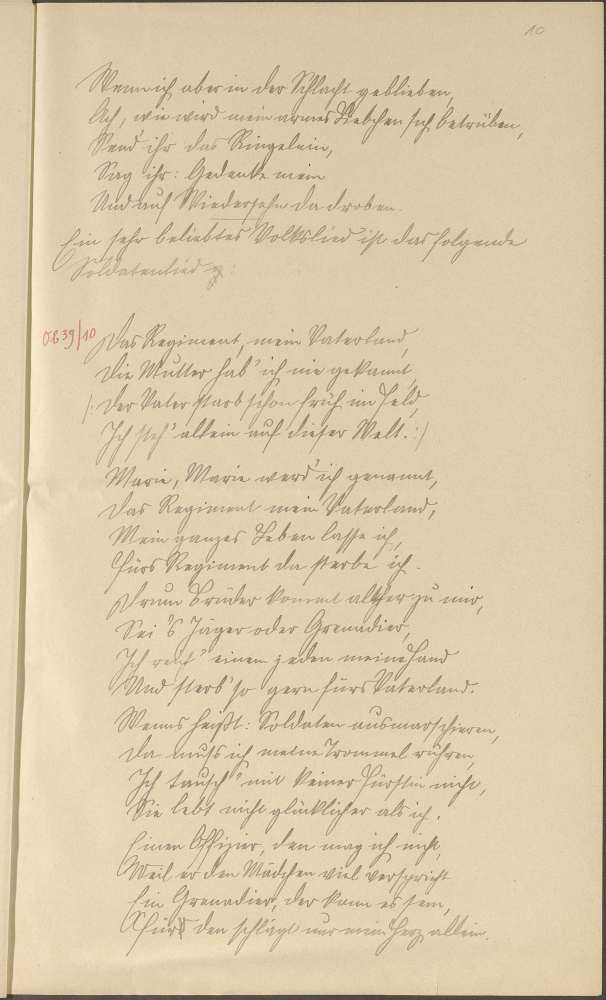 10
Wenn ich aber in der Schlacht geblieben,
Ach, wie wird mein armes Liebchen sich betrüben,
Send ihr das Ringelein,
Sag ihr: Gedenke mein
Und auf Wiedersehn da droben.
Ein sehr beliebtes Volkslied ist das folgende
Soldatenlied:
OE 39/10
Das Regiment, mein Vaterland,
Die Mutter hab' ich nie gekannt,
/: Der Vater starb schon früh im Feld,
Ich steh' allein auf dieser Welt. :/
Marie, Marie werd' ich genannt,
Das Regiment mein Vaterland,
Mein ganzes Leben lasse ich,
Fürs Regiment da sterbe ich.
Drum Brüder kommt all her zu mir,
Sei 's Jäger oder Grenadier,
Ich reich' einem jeden meine Hand
Und sterb' so gern fürs Vaterland.
Wenns heißt: Soldaten ausmarschieren,
Da muß ich meine Trommel rühren,
Ich tausch' mit keiner Fürstin nicht,
Sie lebt nicht glücklicher als ich.
Einen Offizier, den mag ich nicht,
Weil er den Mädchen viel verspricht
Ein Grenadier, der kann es sein,
Für den schlägt nur mein Herz allein.